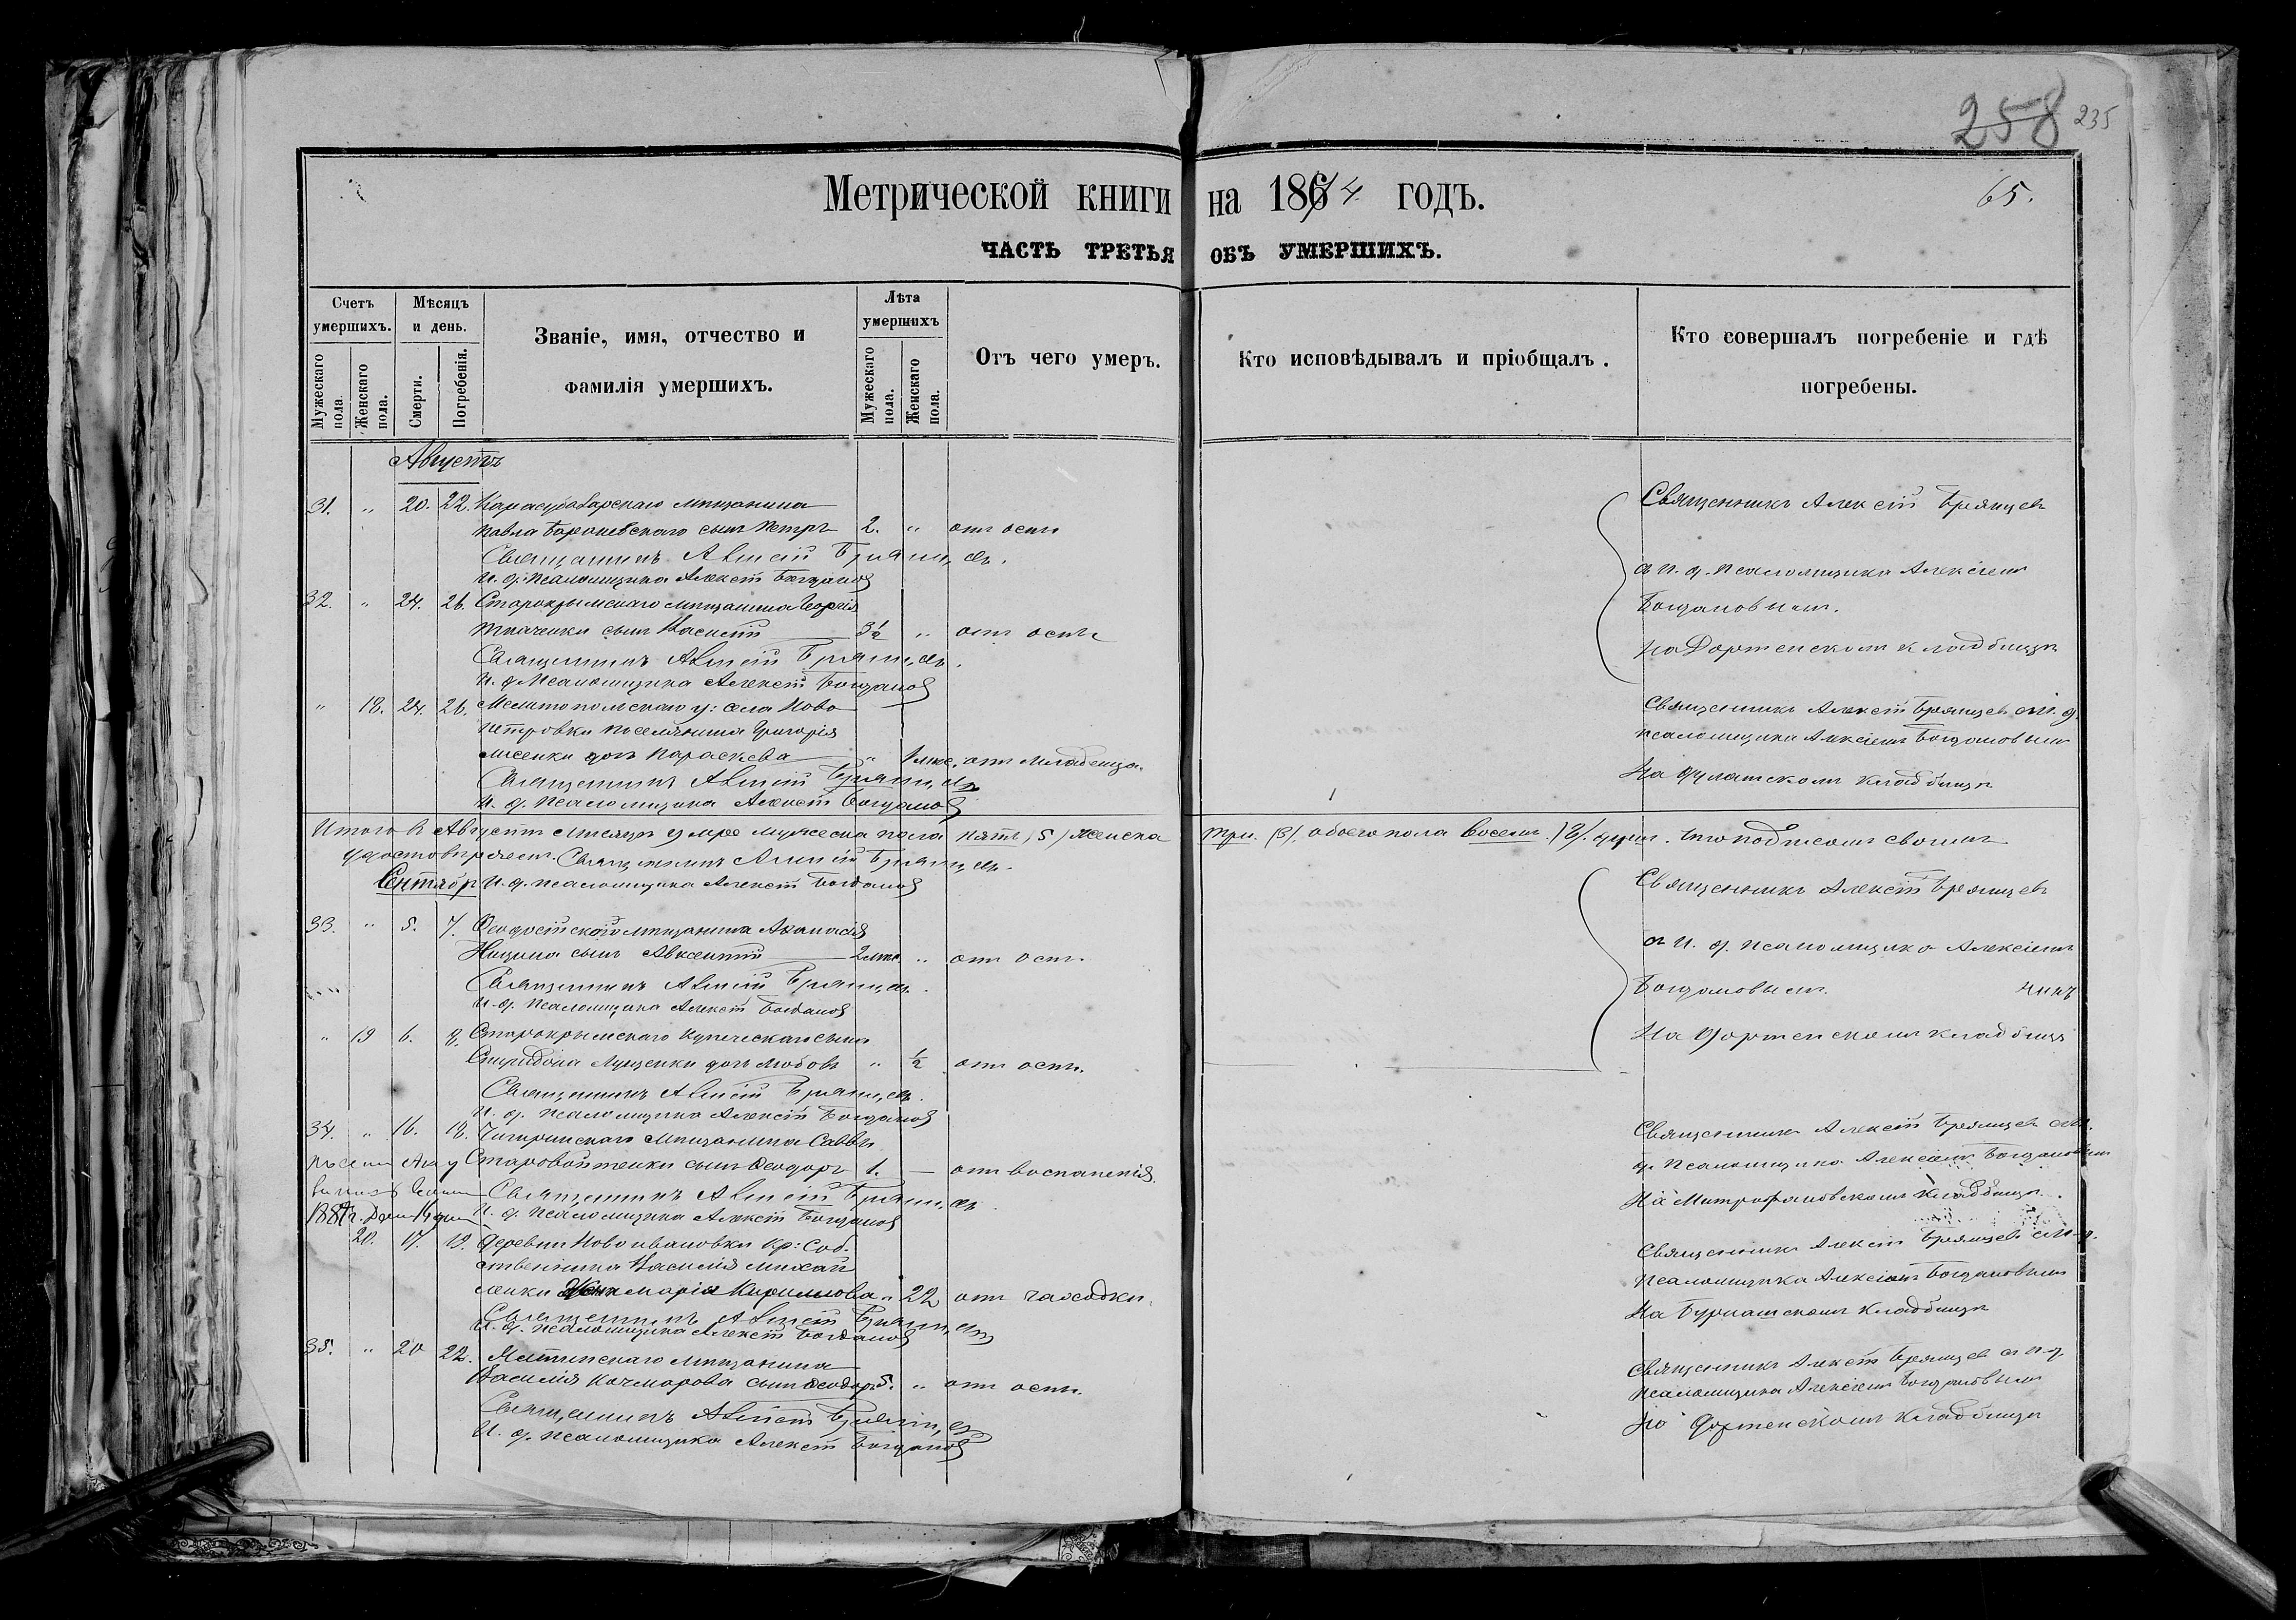 258 235
Метрической книги на 1864 4. годъ.
65.
ЧАСТЬ ТРЕТЬЯ ОБЪ УМЕРШИХЪ.
Счетъ умершихъ.
Мѣсяцъ и день.
Званіе, имя, отчество и фамилія умершихъ.
Лѣта умершихъ
Отъ чего умеръ.
Кто исповѣдывалъ и пріобщалъ.
Кто совершалъ погребеніе и гдѣ погребены.
Мужескаго пола.
Женскаго пола.
Смерти.
Погребенія.
Мужескаго пола.
Женскаго пола.
Августъ
31. " 20. 22. Карасубазарскаго мѣщанина
Павла сынъ Петръ 2. " отъ оспы
Священникъ Алексій Брянцевъ.
И. д. псаломщика Алексѣй Богдановъ
Священникъ Алексій Брянцевъ
съ и. д. псаломщика Алексіемъ
Богдановымъ.
32. " 24. 26. Старокрымскаго мѣщанина Георгія
Ткаченки сынъ Василій 3½ " отъ оспы
Священникъ Алексій Брянцевъ.
И. д. псаломщика Алексѣй Богдановъ
кладбищѣ
" 18. 24. 26. Мелитопольскаго у: села Ново
Петровки поселянина Григорія
Лисенки дочь Параскева " 1 мѣс. отъ младенч.
Священникъ Алексій Брянцевъ
И. д. псаломщика Алексѣй Богдановъ
Священникъ Алексѣй Брянцевъ съ и. д.
псаломщика Алексіемъ Богдановымъ
кладбищѣ
Итого въ Августѣ мѣсяцѣ умре мужеска пола пять (5) женска три (3). обоего пола восемь (8) душъ. Что подписомъ своимъ
удостовѣряемъ. Священникъ Алексій Брянцевъ.
Сентябрь И. д. псаломщика Алексѣй Богдановъ
33. " 5. 7. Ѳеодосійскаго мѣщанина Аѳанасія
сынъ Авксентій 2 " отъ оспы.
Священникъ Алексій Брянцевъ.
И. д. псаломщика Алексѣй Богдановъ
Священникъ Алексѣй Брянцевъ
съ и. д. псаломщика Алексіемъ
Богдановымъ.
" 19 6. 8. Старокрымскаго купеческаго сына
Спиридона Луценки дочь Любовь " ½ отъ оспы.
Священникъ Алексій Брянцевъ.
И. д. псаломщика Алексѣй Богдановъ
кладбищѣ
34. " 16. 18. Чигиринскаго мѣщанина Саввы
Старовойтенки сынъ Ѳеодоръ 1. — отъ воспаленія.
Священникъ Алексій Брянцевъ
И. д. псаломщика Алексѣй Богдановъ
Священникъ Алексѣй Брянцевъ съ и.
д. псаломщика Алексіемъ Богдановымъ
На Митрофановскомъ кладбищѣ.
20. 17. 19. Деревни Ново Ивановки кр: соб-
ственника Василія Михай
ленки жена Марія Кириллова " 22 отъ чахотки.
Священникъ Алексій Брянцевъ
И. д. псаломщика Алексѣй Богдановъ
Священникъ Алексѣй Брянцевъ съ и. д.
псаломщика Алексіемъ Богдановымъ
кладбищѣ
35. " 20 22. мѣщанина
Василія Качмарова сынъ Ѳеодоръ 5. " отъ оспы.
Священникъ Алексій Брянцевъ
И. д. псаломщика Алексѣй Богдановъ
Священникъ Алексѣй Брянцевъ съ и. д.
псаломщика Алексіемъ Богдановымъ
кладбищѣ